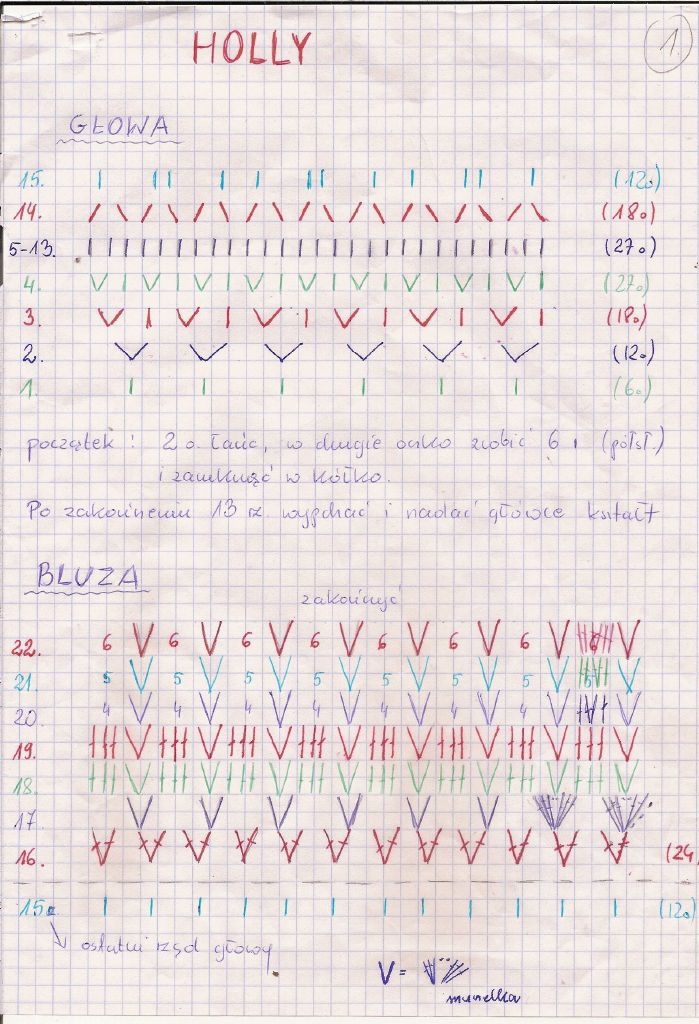 HOLLY
1.
GŁOWA
15. (12o)
14. (18o)
5-13. (27o)
4. (27o)
3. (18o)
2. (12o)
1. (6o)
początek : 2 o. łańc, w drugie oczko zrobić 6 ı (półsł.)
i zamknąć w kółko.
Po zakończeniu 13 rz. wypchać i nadać główce kształt
BLUZA
zakończyć
22. 6 6 6 6 6 6 6 6
21. 5 5 5 5 5 5 5 5
20. 4 4 4 4 4 4 4
19.
18.
17
16. (24
15. (12o)
ostatni rząd głowy
V =
muszelka